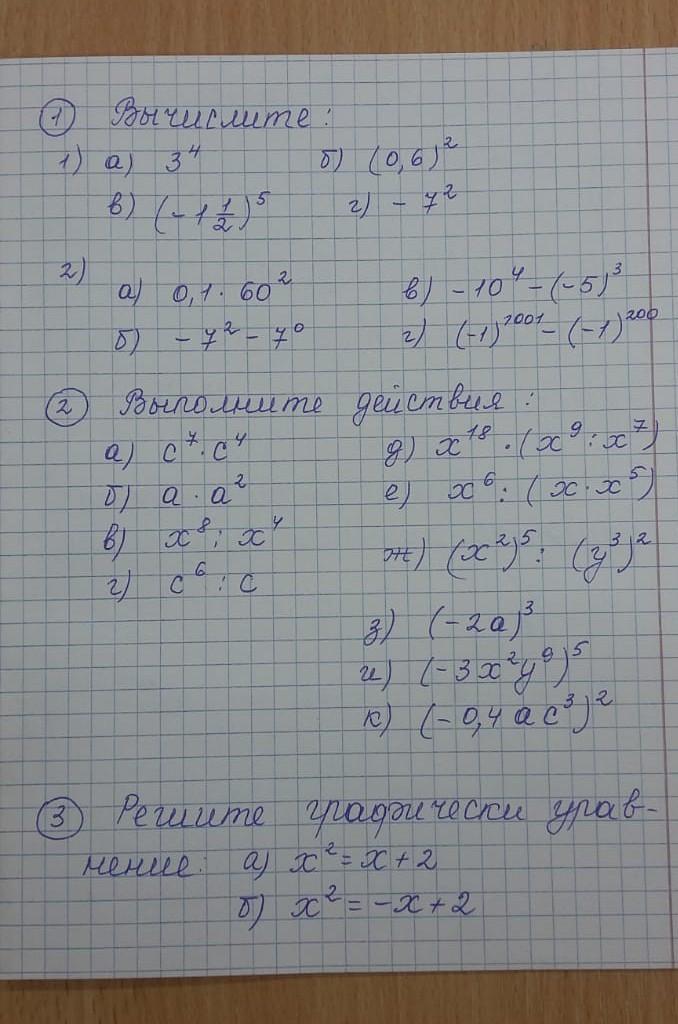 ① Вычислите:
1) а) 3⁴ б) (0,6)²
в) (-1 1/2)⁵ г) - 7²
2)
а) 0,1 · 60² в) -10⁴ - (-5)³
б) - 7² - 7⁰ г) (-1)²⁰⁰¹ - (-1)²⁰⁰
② Выполните действия:
а) c⁷ · c⁴ д) x¹⁸ · (x⁹ : x⁷)
б) a · a² е) x⁶ : (x · x⁵)
в) x⁸ : x⁴ ж) (x²)⁵ : (y³)²
г) c⁶ : c
з) (-2a)³
и) (-3x²y⁹)⁵
к) (-0,4 ac³)²
③ Решите графически урав-
нение: а) x² = x + 2
б) x² = -x + 2